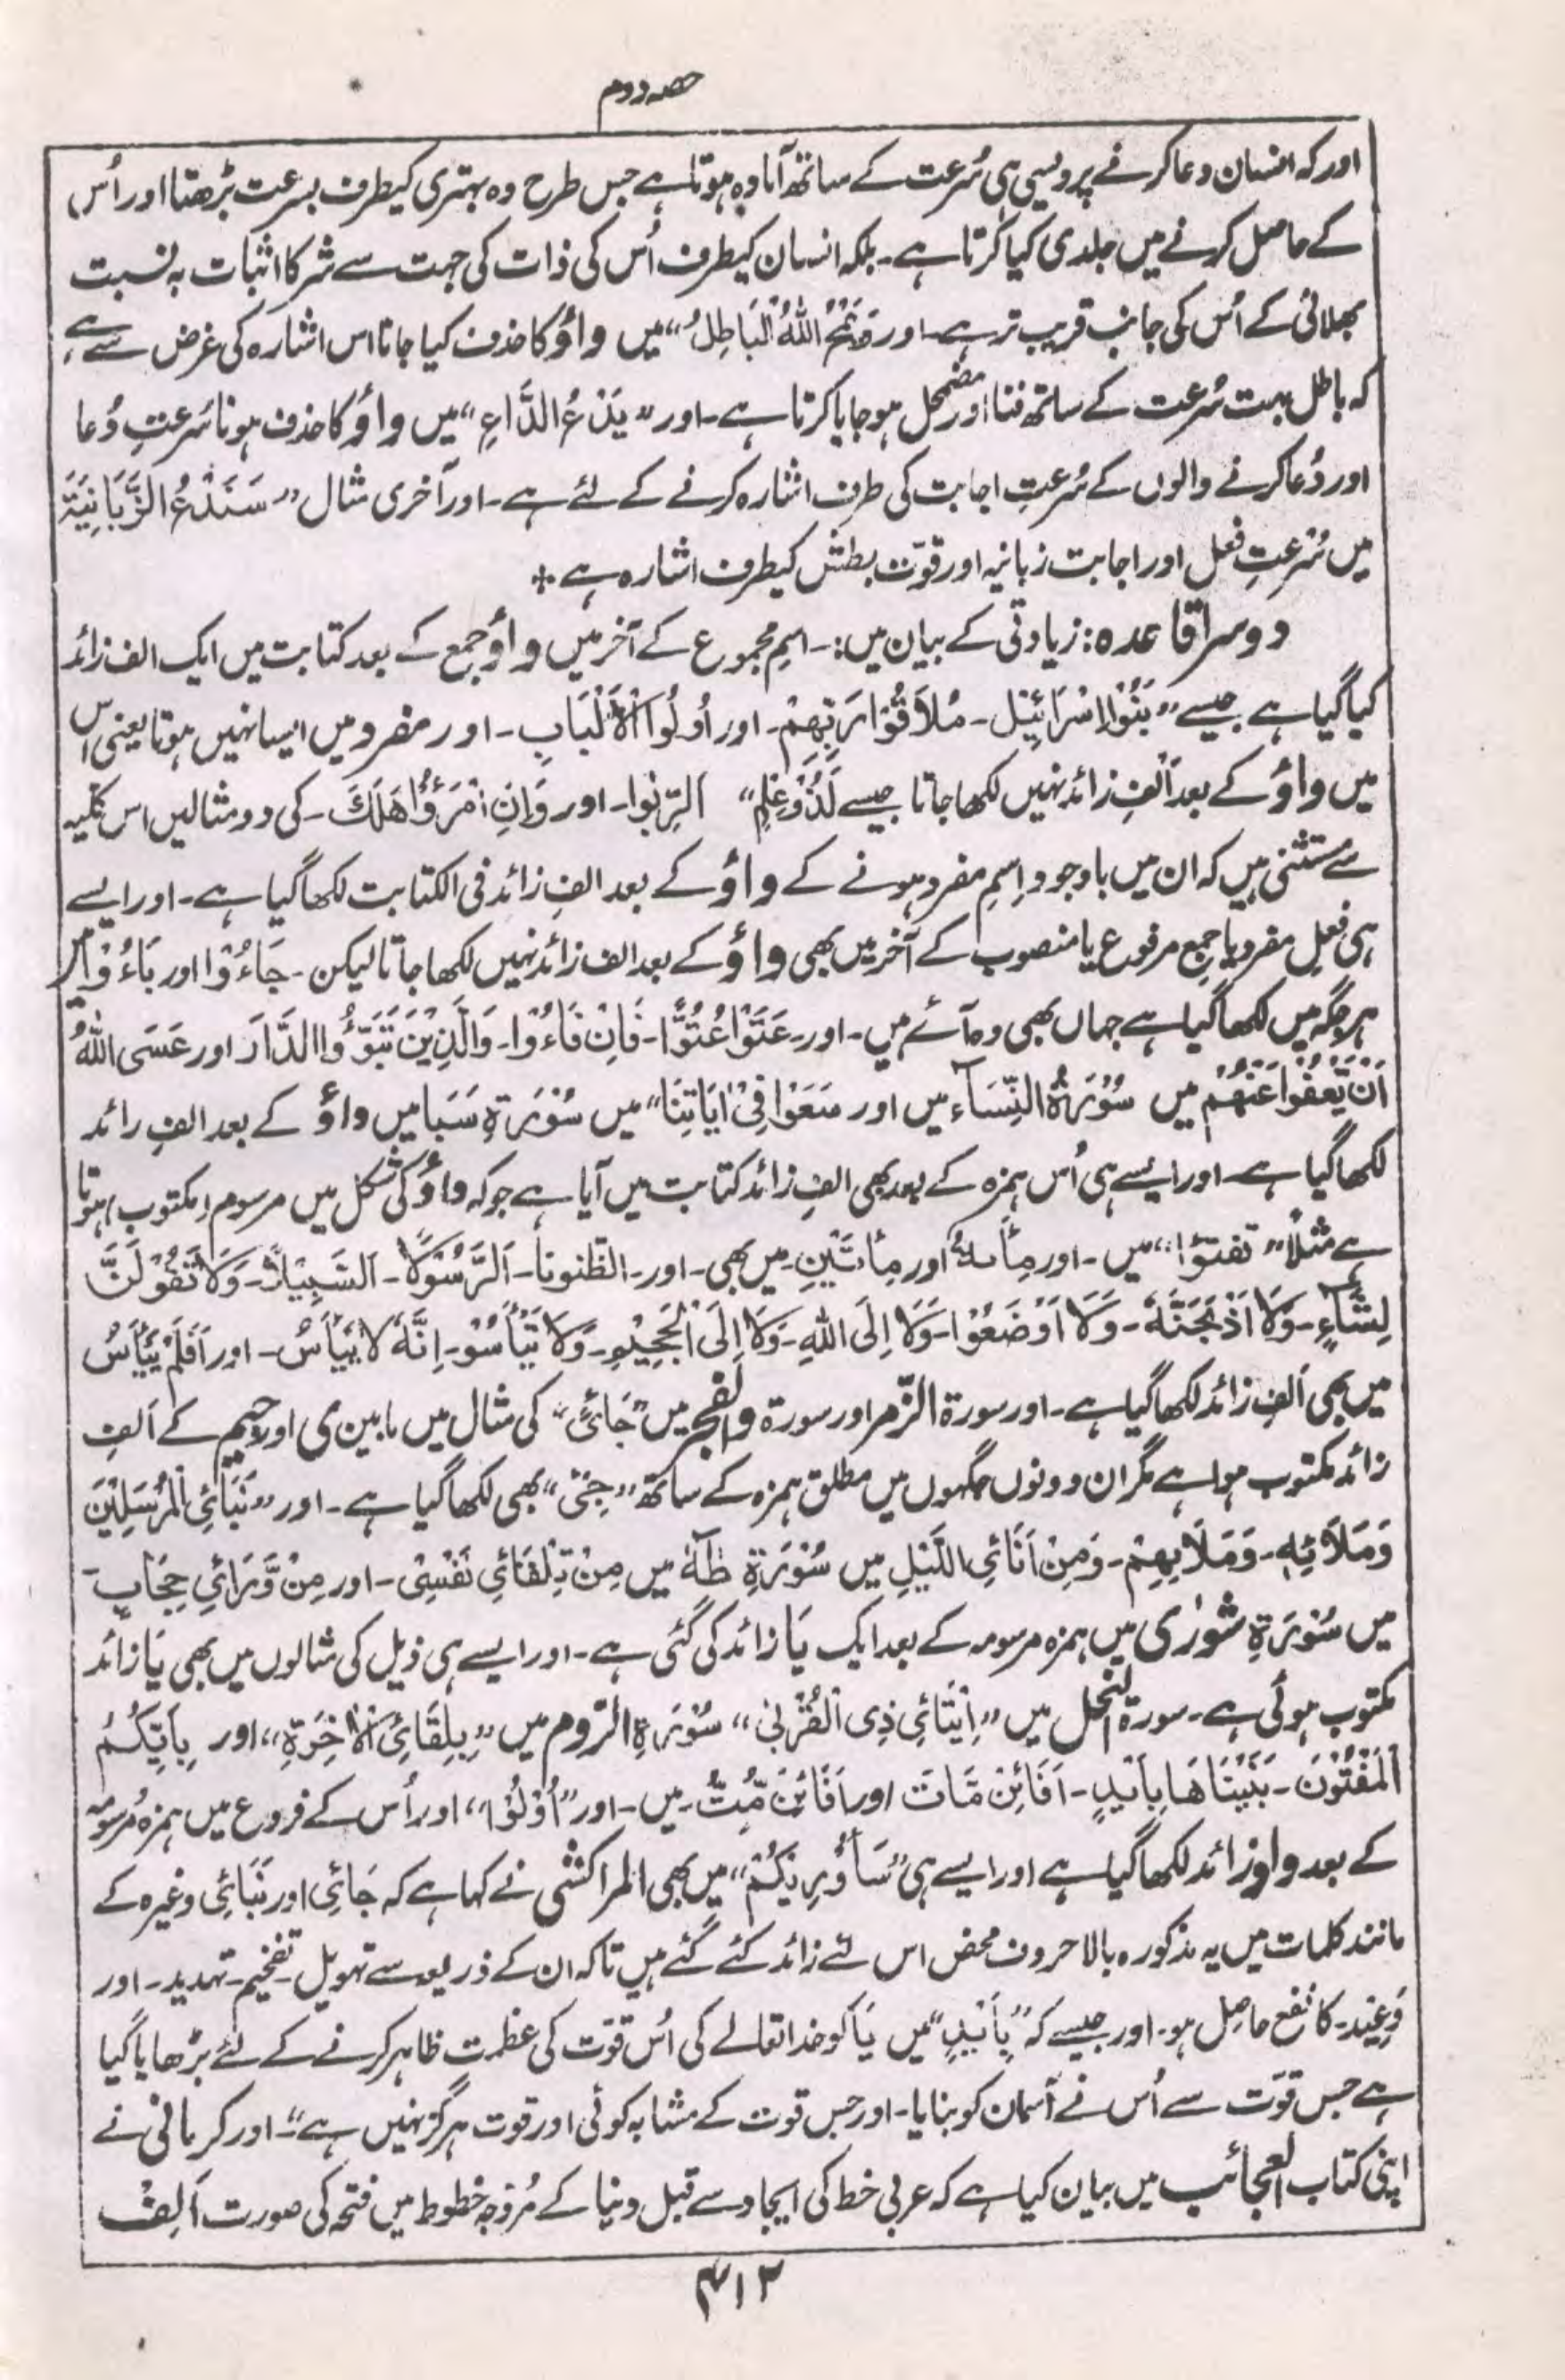 حصہ دوم
اور کہ انسان دعا کرنے پر ویسی ہی سُرعت کے ساتھ آمادہ ہوتا ہے جس طرح وہ بہتری کیطرف بسرعت بڑھتا اور اُس
کے حاصل کرنے میں جلدی کیا کرتا ہے۔ بلکہ انسان کیطرف اُس کی ذات کی جہت سے شر کا اثبات بہ نسبت
بھلائی کے اُس کی جانب قریب تر ہے۔ اور وَیَمْحُ اللّٰہُ الْبَاطِلَ“ میں واؤ کا حذف کیا جانا اس اشارہ کی غرض سے ہے
کہ باطل بہت سُرعت کے ساتھ فنا اور مضمحل ہو جایا کرتا ہے۔ اور ”یَدْعُ الدَّاعِ“ میں واؤ کا حذف ہونا سُرعتِ دُعا
اور دُعا کرنے والوں کے سُرعتِ اجابت کی طرف اشارہ کرنے کے لئے ہے۔ اور آخری مثال ”سَنَدْعُ الزَّبَانِیَۃَ
میں سُرعتِ فعل اور اجابت زبانیہ اور قوّت بطش کیطرف اشارہ ہے ٭
دوسرا قاعدہ: زیادتی کے بیان میں:۔ اسمِ مجموع کے آخر میں واؤ جمع کے بعد کتابت میں ایک الف زائد
کیا گیا ہے جیسے ”بَنُوْا اِسْرَائِیْل۔ مُلَاقُوْا رَبِّھِمْ۔ اور اُولُوا الْاَلْبَابِ۔ اور مفرد میں ایسا نہیں ہوتا یعنی اس
میں واؤ کے بعد اَلفِ زائد نہیں لکھا جاتا جیسے لَذُوْعِلْمٍ“ اَلرِّبٰوا۔ اور وَاِنِ امْرَؤٌا ھَلَکَ۔ کی دو مثالیں اس کلیہ
سے مستثنیٰ ہیں کہ ان میں باوجود اِسمِ مفرد ہونے کے واؤ کے بعد الفِ زائد فی الکتابت لکھا گیا ہے۔ اور ایسے
ہی فعلِ مفرد یا جمع مرفوع یا منصوب کے آخر میں بھی واؤ کے بعد الف زائد نہیں لکھا جاتا لیکن۔ جَاءُوْا اور بَاءُوْا میں
ہر جگہ میں لکھا گیا ہے جہاں بھی وہ آئے ہیں۔ اور۔ عَتَوْا عُتُوًّا۔ فَاِنْ فَاءُوْا۔ وَالَّذِیْنَ تَبَوَّؤُا الدَّارَ اور عَسَی اللّٰہُ
اَنْ یَّعْفُوَا عَنْھُمْ میں سُوْرَۃُ النِّسَآء میں اور سَعَوْا فِیْ اٰیَاتِنَا“ میں سُوْرَۃِ سَبَا میں واؤ کے بعد الفِ زائد
لکھا گیا ہے۔ اور ایسے ہی اُس ہمزہ کے بعد بھی الفِ زائد کتابت میں آیا ہے جو کہ واؤ کی شکل میں مرسوم (مکتوب) ہوتا
ہے مثلاً ”تفتؤا“ میں۔ اور مِأَئۃٌ اور مِأئَتَیْنِ۔ میں بھی۔ اور۔ الظنونا۔ اَلرَّسُوْلَا۔ اَلسَّبِیْلَا۔ وَلَا تَقُوْلَنَّ
لِشَاْیءٍ۔ وَلَا اَذْبَحَنَّہٗ۔ وَلَا اَوْضَعُوْا۔ وَلَا اِلَی اللّٰہِ۔ وَلَا اِلَی الْجَحِیْمِ۔ وَلَا تَیْأَسُوْ۔ اِنَّہٗ لَا یَیْأَسُ۔ اور اَفَلَمْ یَیْأَسْ
میں بھی اَلفِ زائد لکھا گیا ہے۔ اور سورۃ الزّمر اور سورۃ والفجر میں ”جَائیَٔ“ کی مثال میں مابین ی اور جیم کے اَلفِ
زائد مکتوب ہوا ہے مگر ان دونوں جگہوں میں مطلق ہمزہ کے ساتھ ”جِئَ“ بھی لکھا گیا ہے۔ اور ”نَبَائِ الْمُرْسَلِیْنَ
وَمَلَائِہٖ۔ وَمَلَائِھِمْ۔ وَمِنْ اٰنَائِ اللَّیْلِ میں سُوْرَۃِ طٰہٰ میں مِنْ تِلْقَائِ نَفْسِیْ۔ اور مِنْ وَّرَائِ حِجَابٍ
میں سُوْرَۃِ شورٰی میں ہمزہ مرسومہ کے بعد ایک یَا زائد کی گئی ہے۔ اور ایسے ہی ذیل کی مثالوں میں بھی یَا زائد
مکتوب ہوئی ہے۔ سورۃ النحل میں ”اِیْتَائِ ذِی الْقُرْبٰی“ سُوْرَۃ الرّوم میں ”بِلِقَائِ الْاٰخِرَۃِ“، اور بِاَیِّکُمُ
الْمَفْتُوْنَ۔ بَنَیْنَاھَا بِاَیْیدٍ۔ اَفَائِنْ مَّاتَ اور اَفَائِنْ مِّتُّ۔ میں۔ اور ”اُوْلُوْا“، اور اُس کے فروع میں ہمزہ مرسومہ
کے بعد واو زائد لکھا گیا ہے اور ایسے ہی ”سَأُورِیْکُمْ“ میں بھی المراکشی نے کہا ہے کہ جَائِ اور نَبَائِ وغیرہ کے
مانند کلمات میں یہ مذکورہ بالا حروف محض اس لئے زائد کئے گئے ہیں تاکہ ان کے ذریعہ سے تہویل۔ تفخیم۔ تہدید۔ اور
وَعِیْد۔ کا نفع حاصِل ہو۔ اور جیسے کہ ”بِاَیْیدٍ“ میں یَا کو خدا تعالےٰ کی اُس قوّت کی عظمت ظاہر کرنے کے لئے بڑھایا گیا
ہے جس قوّت سے اُس نے آسمان کو بنایا۔ اور جس قوت کے مشابہ کوئی اور قوت ہرگز نہیں ہے“۔ اور کرمانی نے
اپنی کتاب العجائب میں بیان کیا ہے کہ عربی خط کی ایجاد سے قبل دنیا کے مُروّجہ خطوط میں فتحہ کی صورت اَلِفْ
۴۱۲